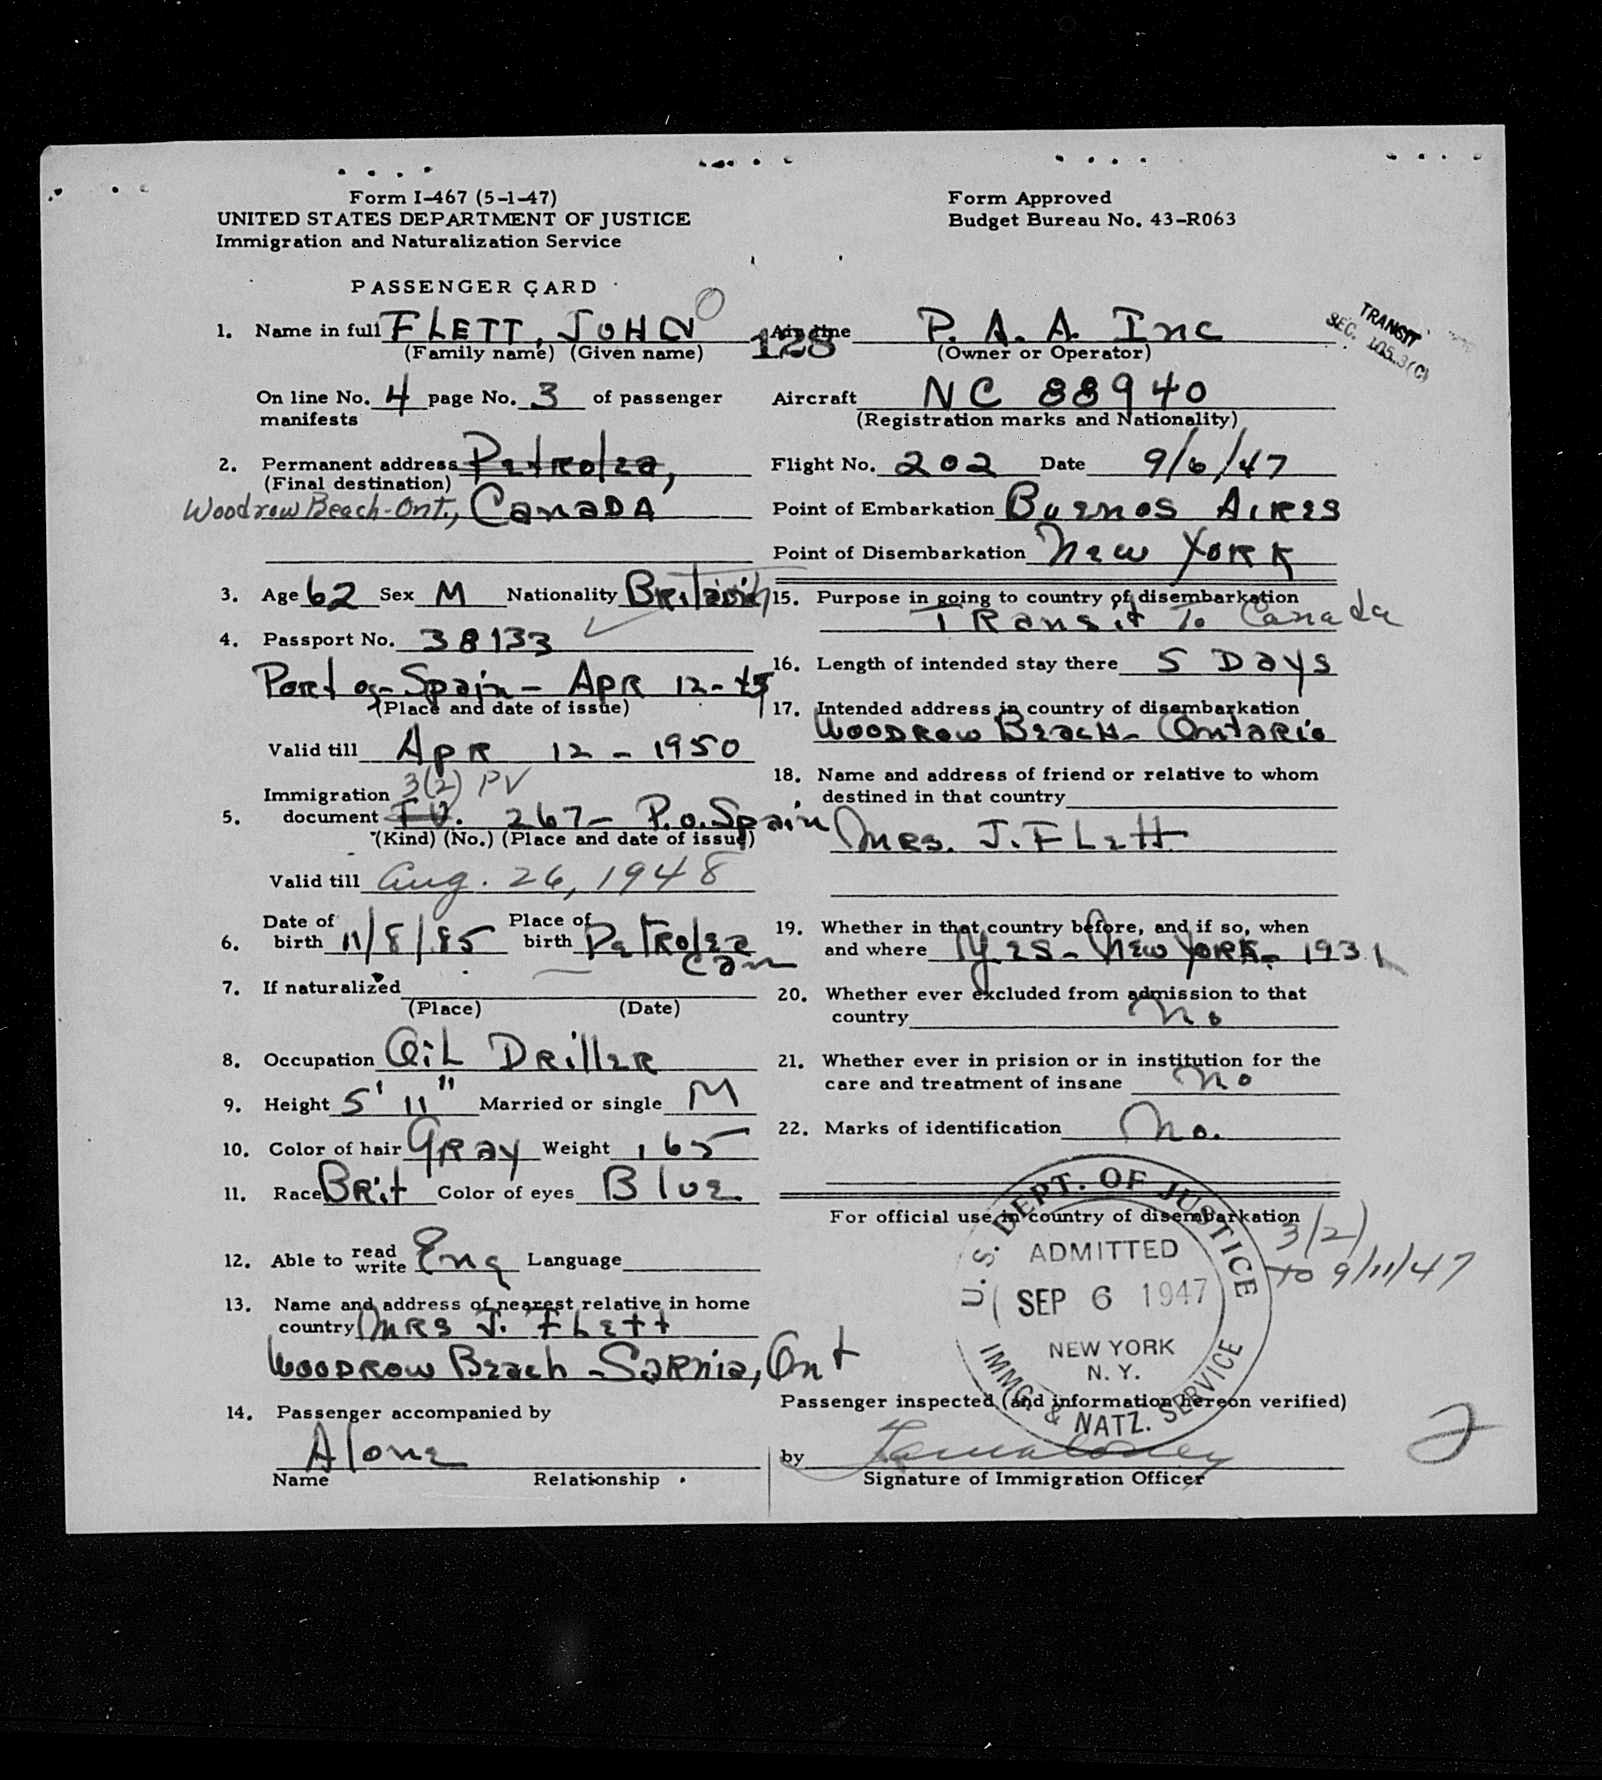 Form I-467 (5-1-47)
UNITED STATES DEPARTMENT OF JUSTICE
Immigration and Naturalization Service
Form Approved
Budget Bureau No. 43-R063
PASSENGER CARD
1. Name in full FLETT, JOHN
(Family name) (Given name)
128
On line No. 4 page No. 3 of passenger
manifests
2. Permanent address Petrolea,
(Final destination)
Woodrow Beach-Ont., Canada
3. Age 62 Sex M Nationality British
4. Passport No. 38133
Port of Spain - Apr 12-45
(Place and date of issue)
Valid till Apr 12 - 1950
3(2) PV
Immigration
5. document 267 - P.o. Spain
(Kind) (No.) (Place and date of issue)
Valid till Aug. 26, 1948
6. Date of birth 11/8/85 Place of birth Petrolea
Can
7. If naturalized
(Place) (Date)
8. Occupation Oil Driller
9. Height 5' 11" Married or single M
10. Color of hair Gray Weight 165
11. Race Brit Color of eyes Blue
12. Able to read write Eng Language
13. Name and address of nearest relative in home
country Mrs J. Flett
Woodrow Beach - Sarnia, Ont
14. Passenger accompanied by
Alone
Name Relationship
Air line P. A. A. Inc
(Owner or Operator)
TRANSIT
SEC. 105.3(C)
Aircraft NC 88940
(Registration marks and Nationality)
Flight No. 202 Date 9/6/47
Point of Embarkation Buenos Aires
Point of Disembarkation New York
15. Purpose in going to country of disembarkation
Transit To Canada
16. Length of intended stay there 5 Days
17. Intended address in country of disembarkation
Woodrow Beach - Ontario
18. Name and address of friend or relative to whom
destined in that country
Mrs. J. Flett
19. Whether in that country before, and if so, when
and where Yes - New York - 1931
20. Whether ever excluded from admission to that
country No
21. Whether ever in prision or in institution for the
care and treatment of insane No
22. Marks of identification No.
For official use in country of disembarkation
3(2)
to 9/11/47
U.S. DEPT. OF JUSTICE
ADMITTED
SEP 6 1947
NEW YORK
N. Y.
IMMG. & NATZ. SERVICE
Passenger inspected (and information hereon verified)
by
Signature of Immigration Officer
2